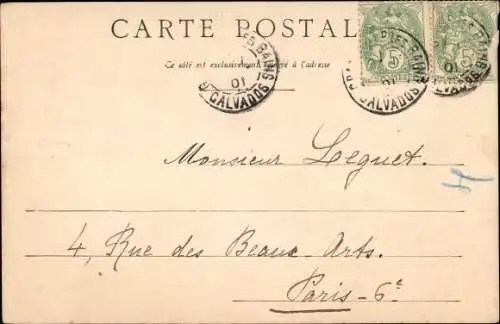 CARTE POSTALE
Ce côté est exclusivement réservé à l'adresse
01
CALVADOS
5
5
01
CALVADOS
01
Monsieur Leguet.
4, Rue des Beaux-Arts.
Paris-6e